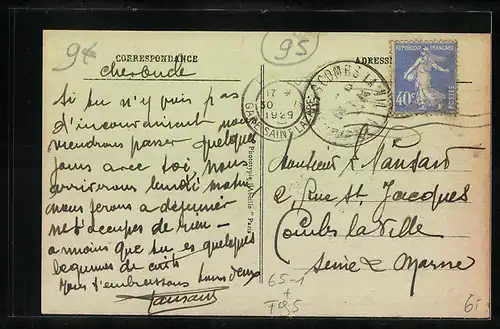 9€
95
CORRESPONDANCE
ADRESSE
cher oncle
Si tu n'y vois pas
d'inconvenient nous
viendrons passer quelques
jours avec toi, nous
arriverons lundi matin
nous ferons a dejeuner
ne t'occupes de rien -
a moins que tu es quelques
legumes de cuits
Nous t'embrassons tous deux
Mansard
REPUBLIQUE FRANÇAISE
40c
POSTES
COMBS LA VILLE
21
30
1929
GARE SAINT LAZARE
Paris
Monsieur E. Mansard
2, Rue St Jacques
Combs la Ville
Seine & Marne
65-1
+
F95
6i